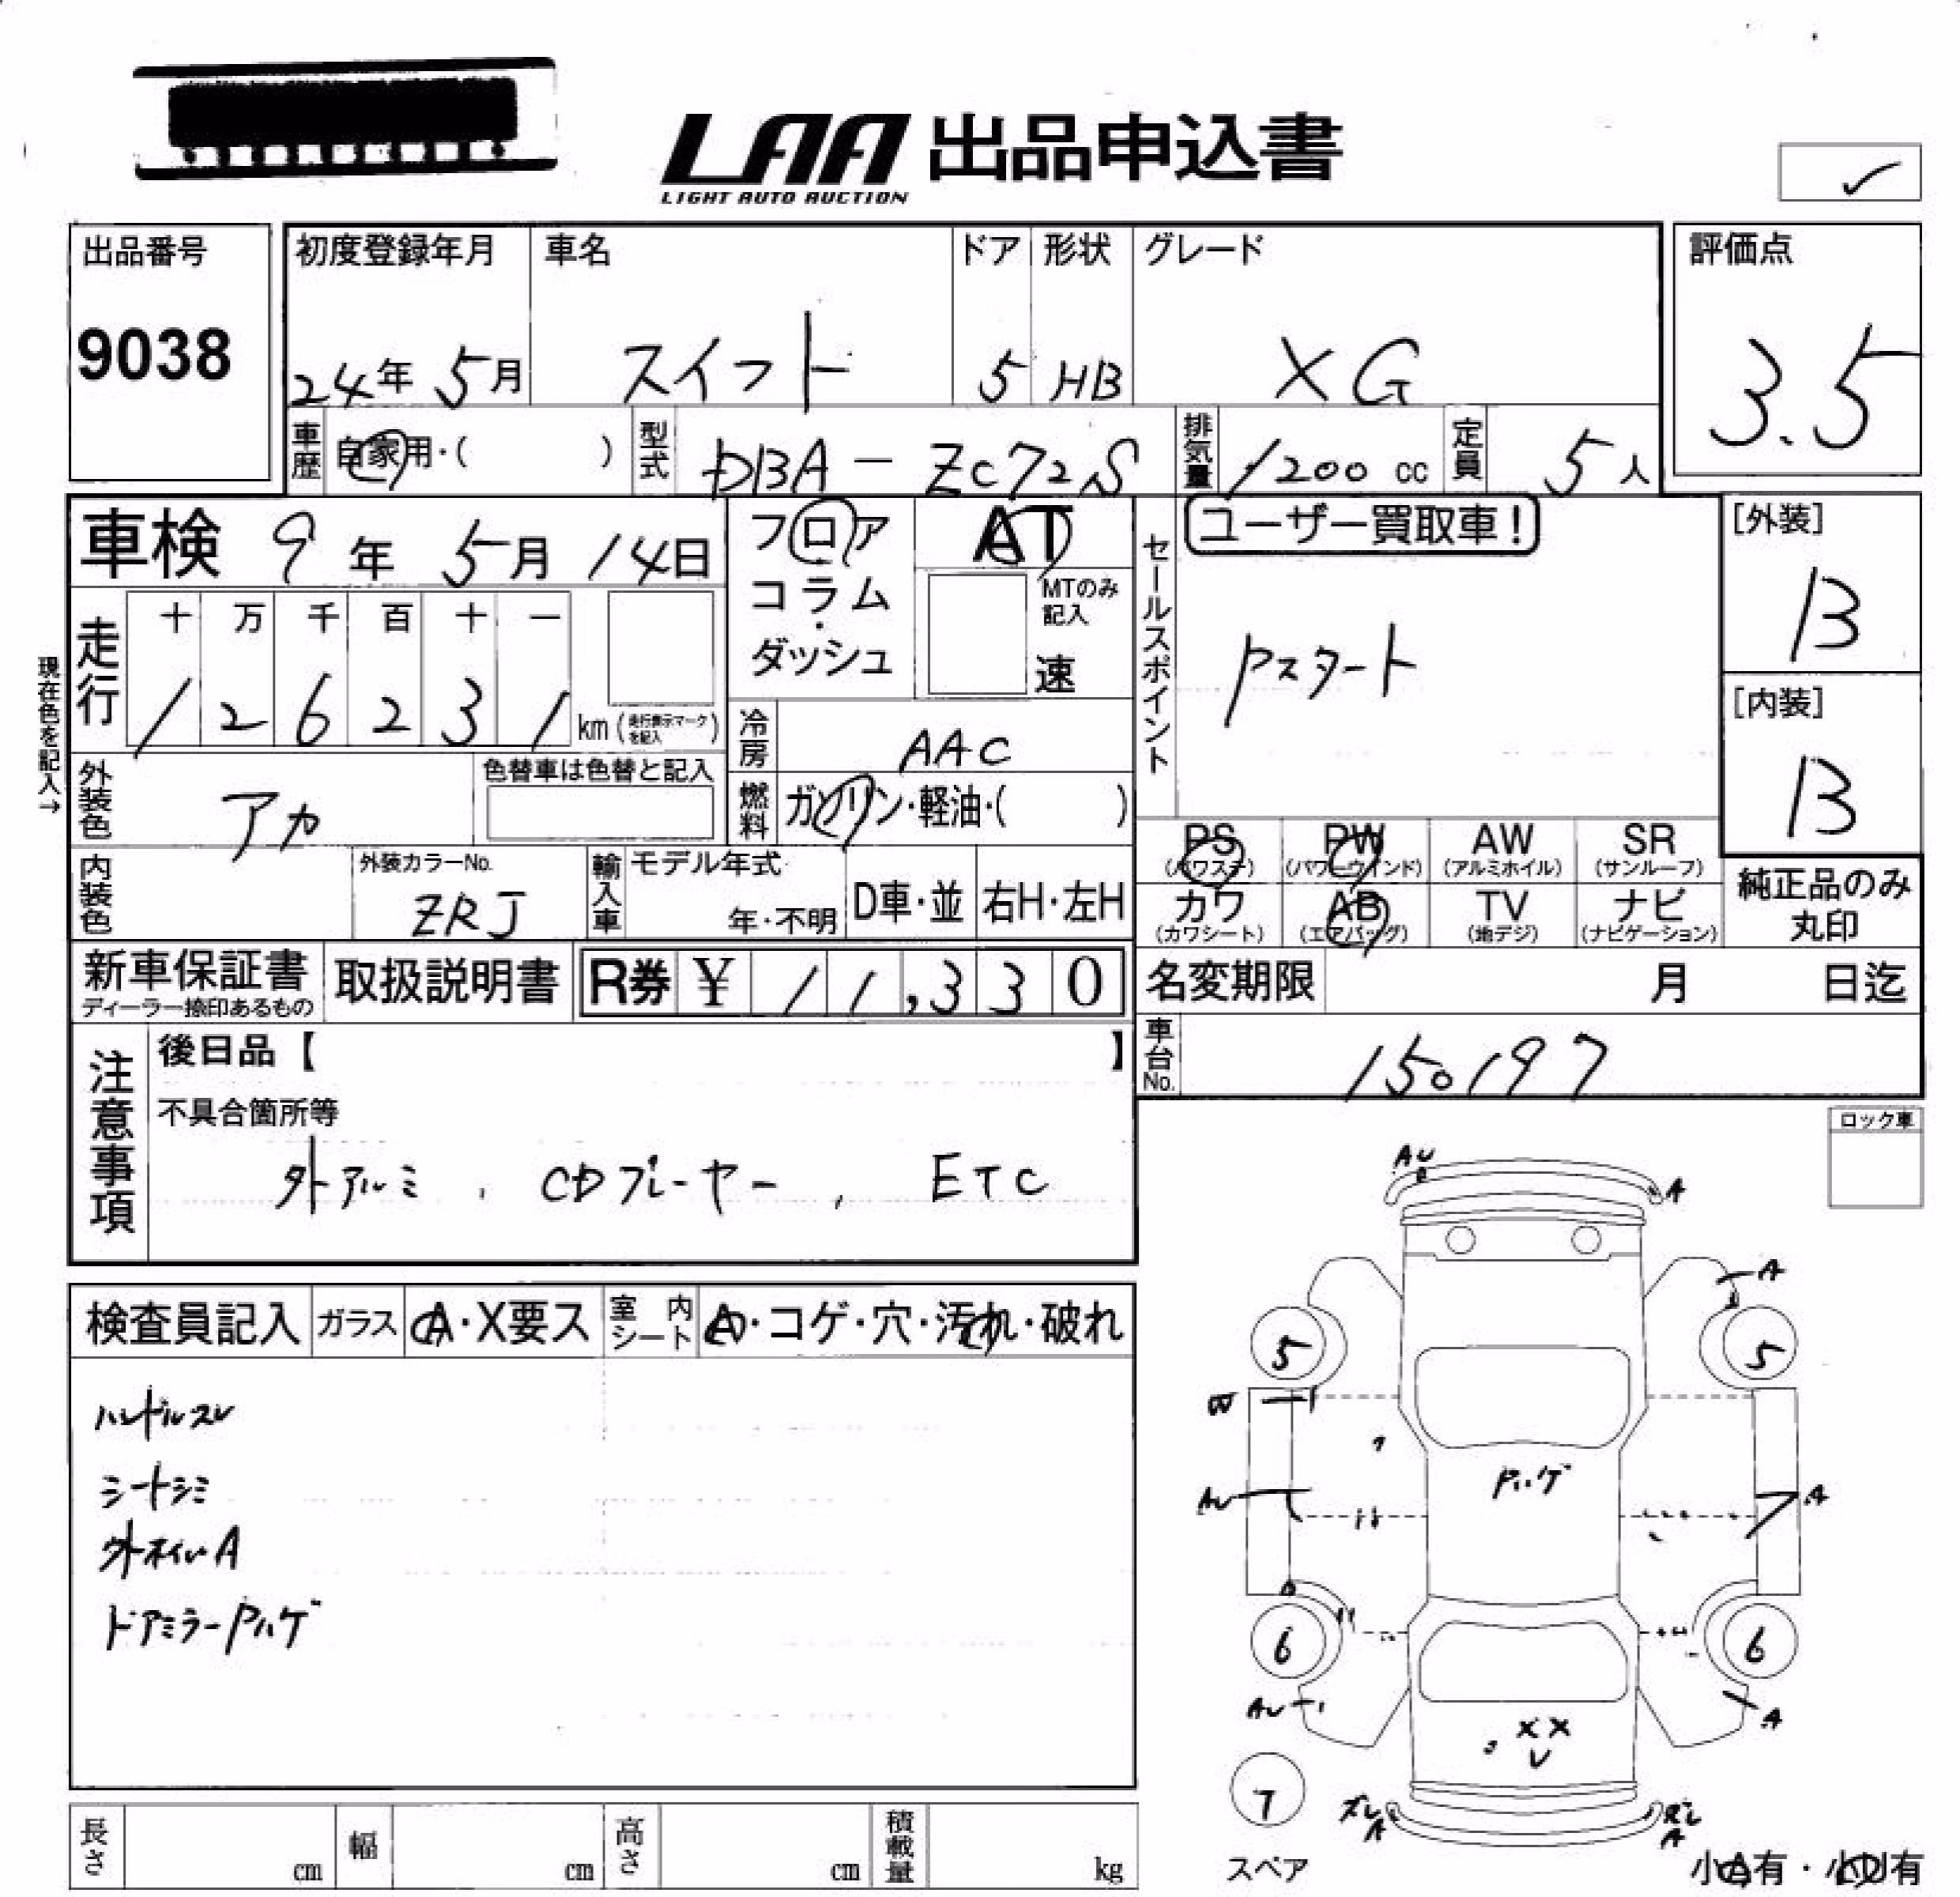 LAA 出品申込書
LIGHT AUTO AUCTION
出品番号
9038
初度登録年月 車名 ドア 形状 グレード
24年 5月 スイフト 5 HB XG
評価点
3.5
車歴 自家用・( ) 型式 DBA-ZC72S 排気量 1200 cc 定員 5人
車検 9年 5月 14日
フロア
コラム
・
ダッシュ
AT
MTのみ
記入
速
セールスポイント
ユーザー買取車!
Pスタート
[外装]
B
[内装]
B
現在色を記入→
走行 十 万 千 百 十 一
1 2 6 2 3 1 km (走行表示マークを記入)
冷房 AAC
燃料 ガソリン・軽油・( )
外装色 アカ 色替車は色替と記入
内装色 外装カラーNo. ZRJ
輸入車 モデル年式 年・不明 D車・並 右H・左H
PS (パワステ) PW (パワーウインド) AW (アルミホイル) SR (サンルーフ)
カワ (カワシート) AB (エアバッグ) TV (地デジ) ナビ (ナビゲーション)
純正品のみ
丸印
新車保証書
ディーラー捺印あるもの
取扱説明書 R券 ¥ 11,330
名変期限 月 日迄
車台No. 150197
注意事項
後日品【 】
不具合箇所等
外アルミ , CDプレーヤー , ETC
ロック車
検査員記入 ガラス A・X要ス 室内シート A・コゲ・穴・汚れ・破れ
ハンドルスレ
シートシミ
外ホイルA
ドアミラーPハゲ
AU A
A
5 5
W
Pハゲ
AU A
6 6
AU A
XX
U
7
ズレ
A
ズレ
A
スペア
小A有・小U有
長さ cm 幅 cm 高さ cm 積載量 kg